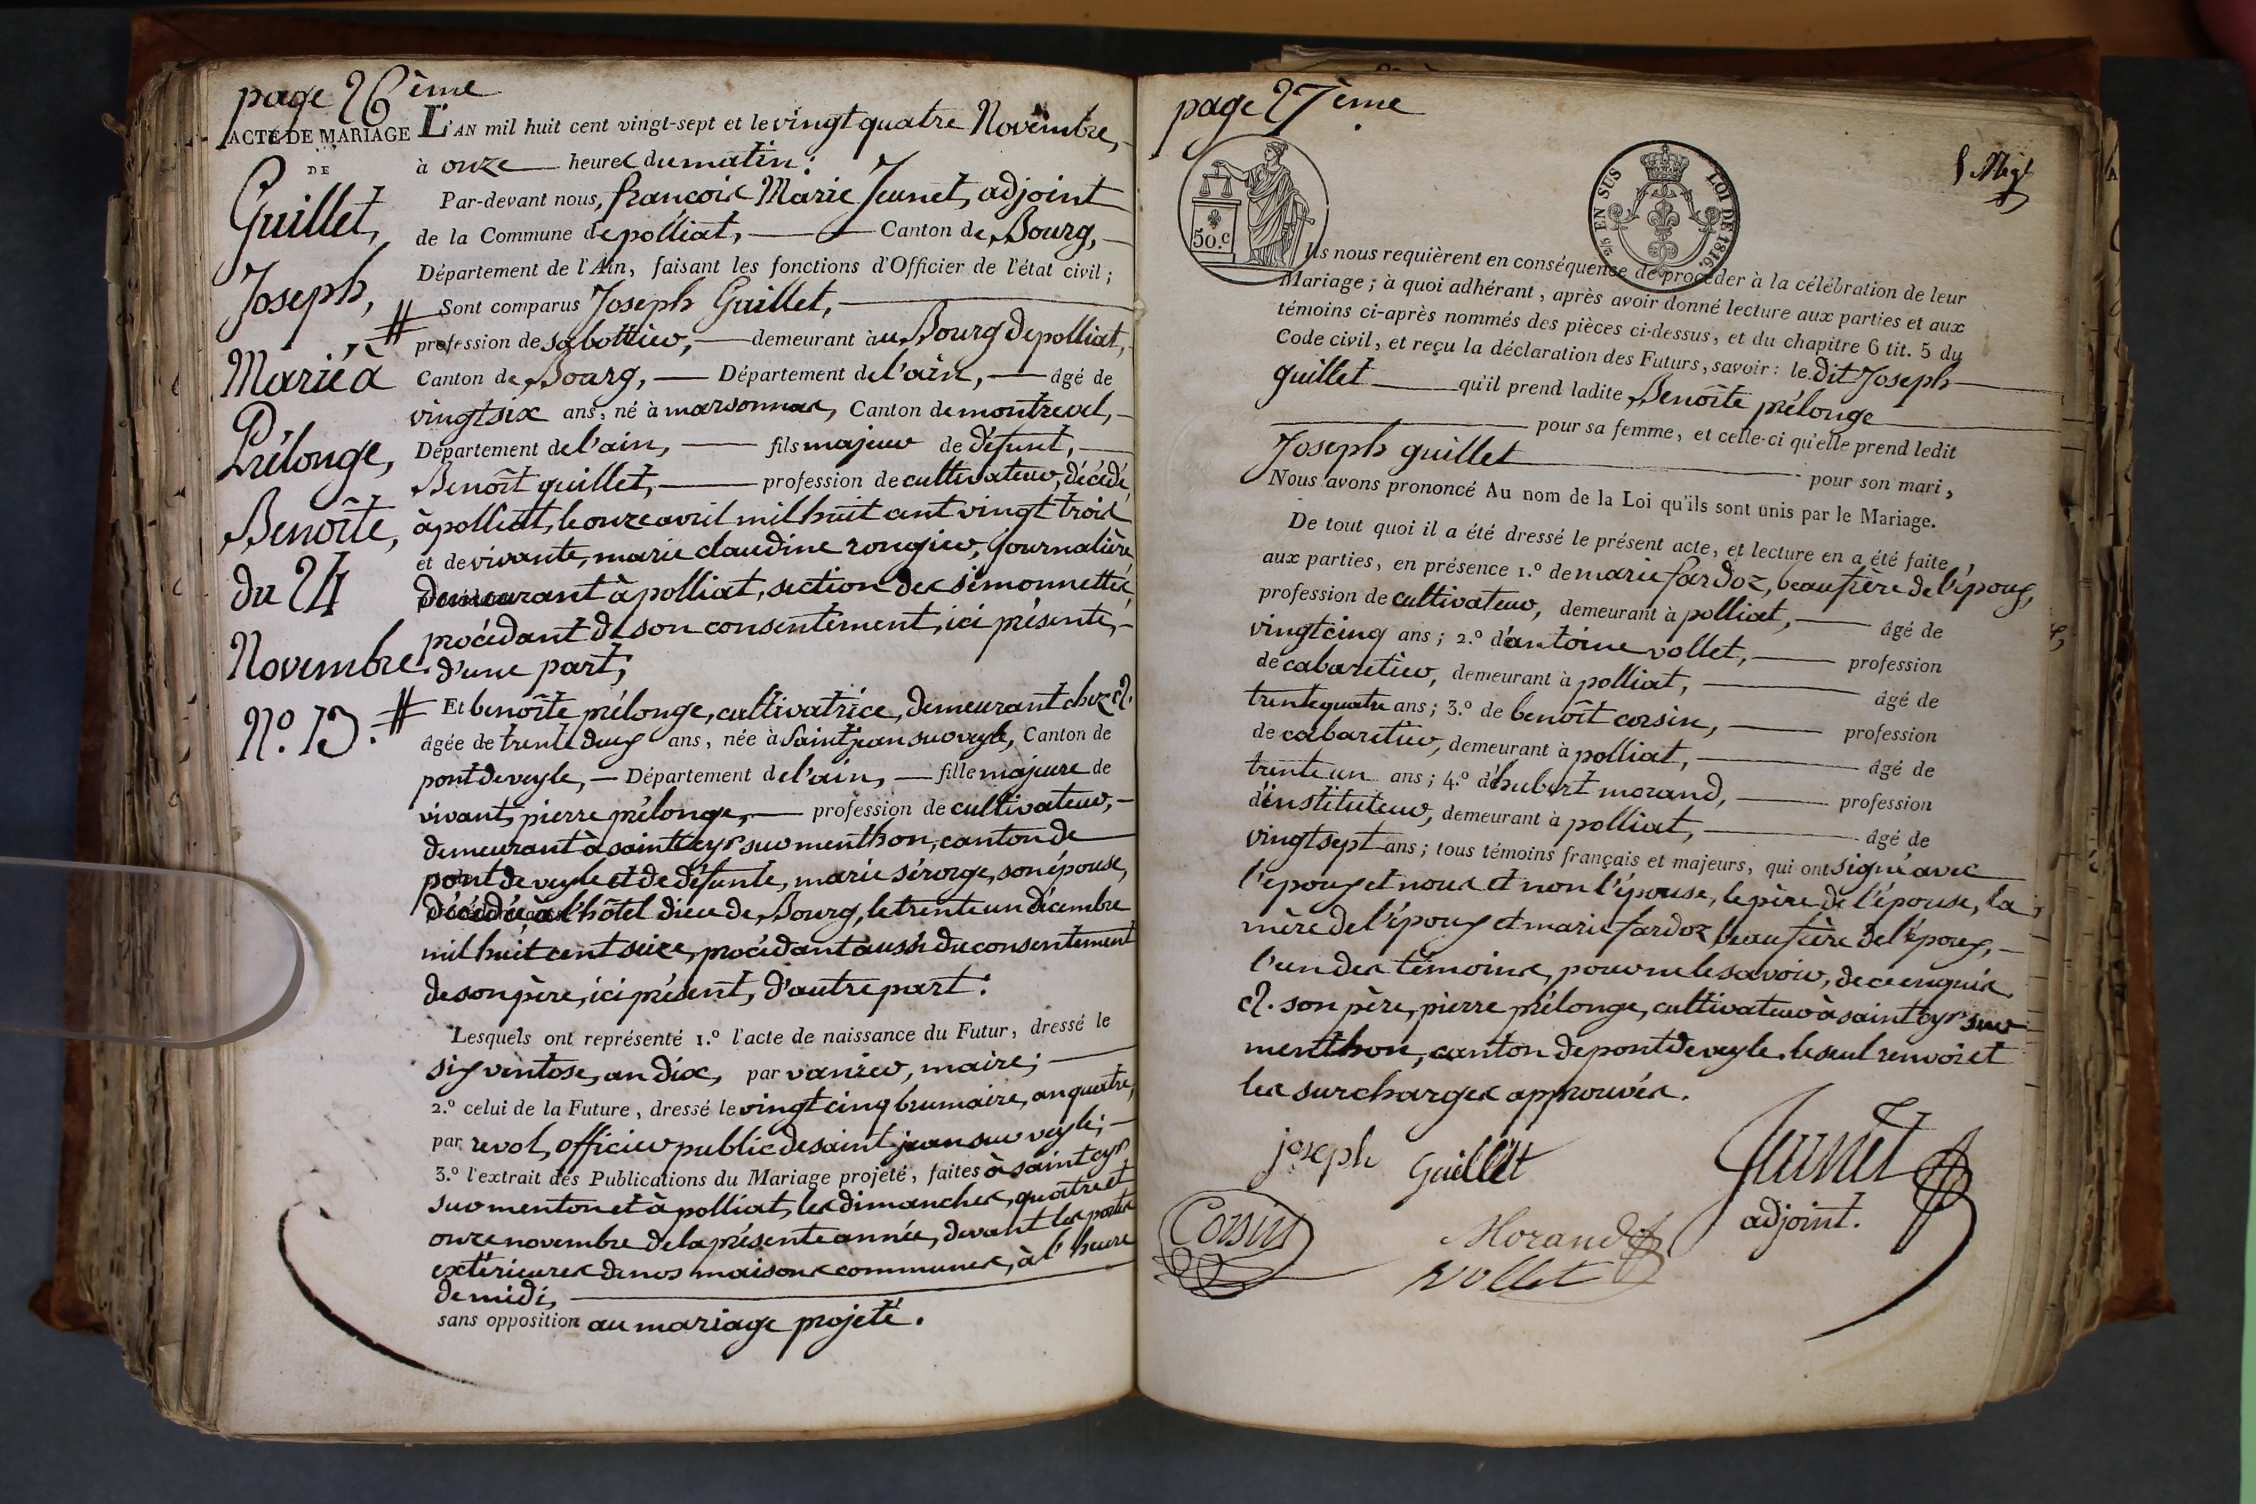 page 26ème
ACTE DE MARIAGE
DE
Guillet,
Joseph,
Marié à
Prélonge,
Benoîte,
du 24
Novembre
N.º 13.
L'AN mil huit cent vingt-sept et le vingt quatre Novembre,
à onze heures du matin :
Par-devant nous, françois Marie Jeunet, adjoint
de la Commune de polliat, Canton de Bourg,
Département de l'Ain, faisant les fonctions d'Officier de l'état civil ;
# Sont comparus Joseph Guillet,
profession de sabottier, demeurant au Bourg de polliat,
Canton de Bourg, Département de l'ain, âgé de
vingt six ans, né à marsonnas, Canton de montrevel,
Département de l'ain, fils majeur de défunt,
Benoît guillet, profession de cultivateur, décédé
à polliat, le onze avril mil huit cent vingt trois
et de vivante, marie claudine rongier, journalière
demeurant à polliat, section des simonnettes,
procédant de son consentement, ici présente,
d'une part ;
# Et benoîte prélonge, cultivatrice, demeurant chez R.
âgée de trente deux ans, née à Saint jean sur veyle, Canton de
pont de veyle, Département de l'ain, fille majeure de
vivant, pierre prélonge, profession de cultivateur,
demeurant à saint cyr sur menthon, canton de
pont de veyle et de défunte, marie sérorge, son épouse,
décédée, à l'hôtel dieu de Bourg, le trente un décembre
mil huit cent seize, procédant aussi du consentement
de son père, ici présent, d'autre part :
Lesquels ont représenté 1.º l'acte de naissance du Futur, dressé le
six ventose, an dix, par vanier, maire ;
2.º celui de la Future, dressé le vingt cinq brumaire, an quatre,
par revol, officier public de saint jean sur veyle ;
3.º l'extrait des Publications du Mariage projeté, faites à saint cyr
sur menton et à polliat, les dimanches, quatre et
onze novembre de la présente année, devant les portes
extérieures de nos maisons communes, à l'heure
de midi,
sans opposition au mariage projeté.
page 27ème
50.c
25 EN SUS LOI DE 1816.
Ils nous requièrent en conséquence de procéder à la célébration de leur
Mariage ; à quoi adhérant, après avoir donné lecture aux parties et aux
témoins ci-après nommés des pièces ci-dessus, et du chapitre 6 tit. 5 du
Code civil, et reçu la déclaration des Futurs, savoir : le dit Joseph
guillet qu'il prend ladite Benoîte prélonge
pour sa femme, et celle-ci qu'elle prend ledit
Joseph guillet pour son mari,
Nous avons prononcé Au nom de la Loi qu'ils sont unis par le Mariage.
De tout quoi il a été dressé le présent acte, et lecture en a été faite,
aux parties, en présence 1.º de marie fardoz, beaufrère de l'époux,
profession de cultivateur, demeurant à polliat, âgé de
vingt cinq ans ; 2.º d'antoine vollet, profession
de cabaretier, demeurant à polliat, âgé de
trente quatre ans ; 3.º de benoît corsin, profession
de cabaretier, demeurant à polliat, âgé de
trente un ans ; 4.º d'hubert morand, profession
d'instituteur, demeurant à polliat, âgé de
vingt sept ans ; tous témoins français et majeurs, qui ont signé avec
l'époux et nous et non l'épouse, le père de l'épouse, la
mère de l'époux et marie fardoz beaufrère de l'époux,
l'un des témoins, pour ne le savoir, de ce enquis.
R. son père, pierre prélonge, cultivateur à saint cyr sur
menthon, canton de pont de veyle. le seul renvoi et
les surcharges approuvés.
joseph Guillet
Jeunet
adjoint.
Corsin
Morand
vollet